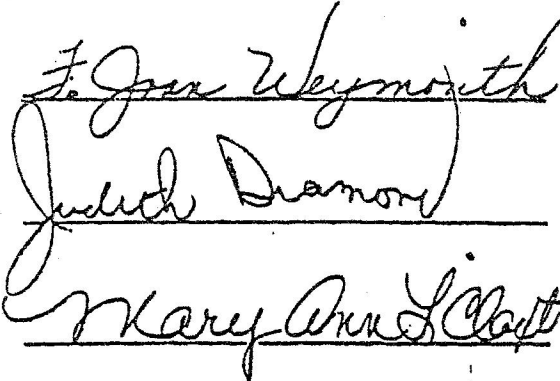 F. Joan Weymouth
Judith Diamond
Mary Ann L.